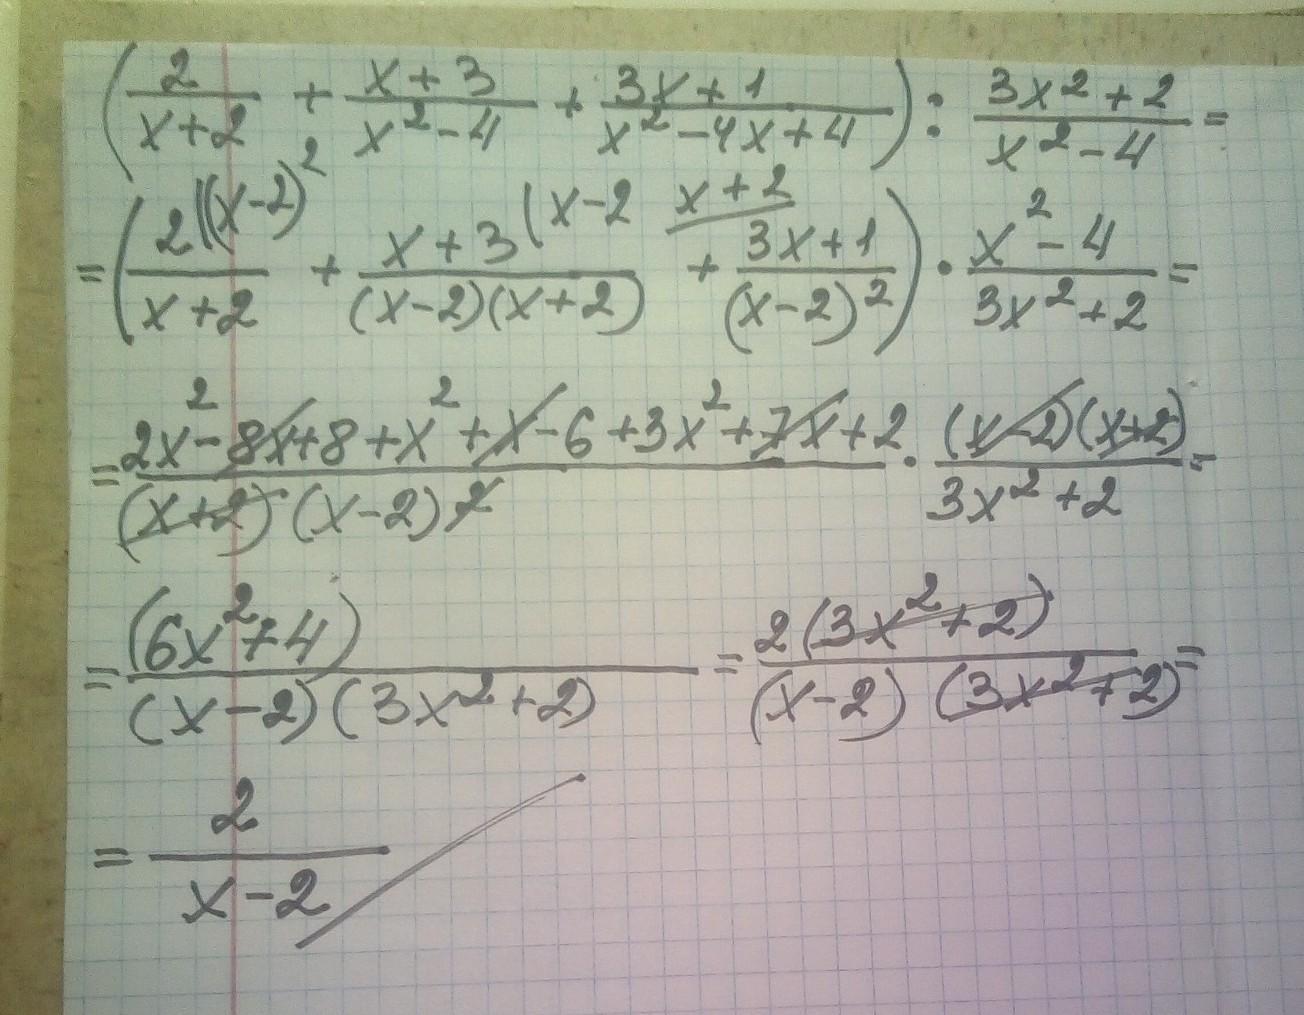 (2/(x+2) + (x+3)/(x²-4) + (3x+1)/(x²-4x+4)) : (3x²+2)/(x²-4) =
= (2((x-2)²/(x+2) + (x+3(x-2)/((x-2)(x+2)) + x+2 (3x+1)/(x-2)²) · (x²-4)/(3x²+2) =
= (2x²-8x+8+x²+x-6+3x²+7x+2)/((x+2)(x-2)2) · ((x-2)(x+2))/(3x²+2) =
= (6x²+4)/((x-2)(3x²+2)) = 2(3x²+2)/((x-2)(3x²+2)) =
= 2/(x-2)